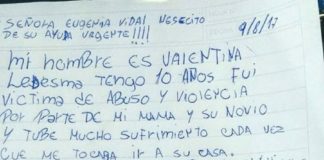 SEÑORA EUGENIA VIDAL NESECITO
DE SU AYUDA URGENTE!!!!
9/8/17
MI NOMBRE ES VALENTINA
LEDESMA TENGO 10 AÑOS FUI
VICTIMA DE ABUSO Y VIOLENCIA
POR PARTE DE MI MAMA Y SU NOVIO
Y TUBE MUCHO SUFRIMIENTO CADA VEZ
QUE ME TOCABA IR A SU CASA.